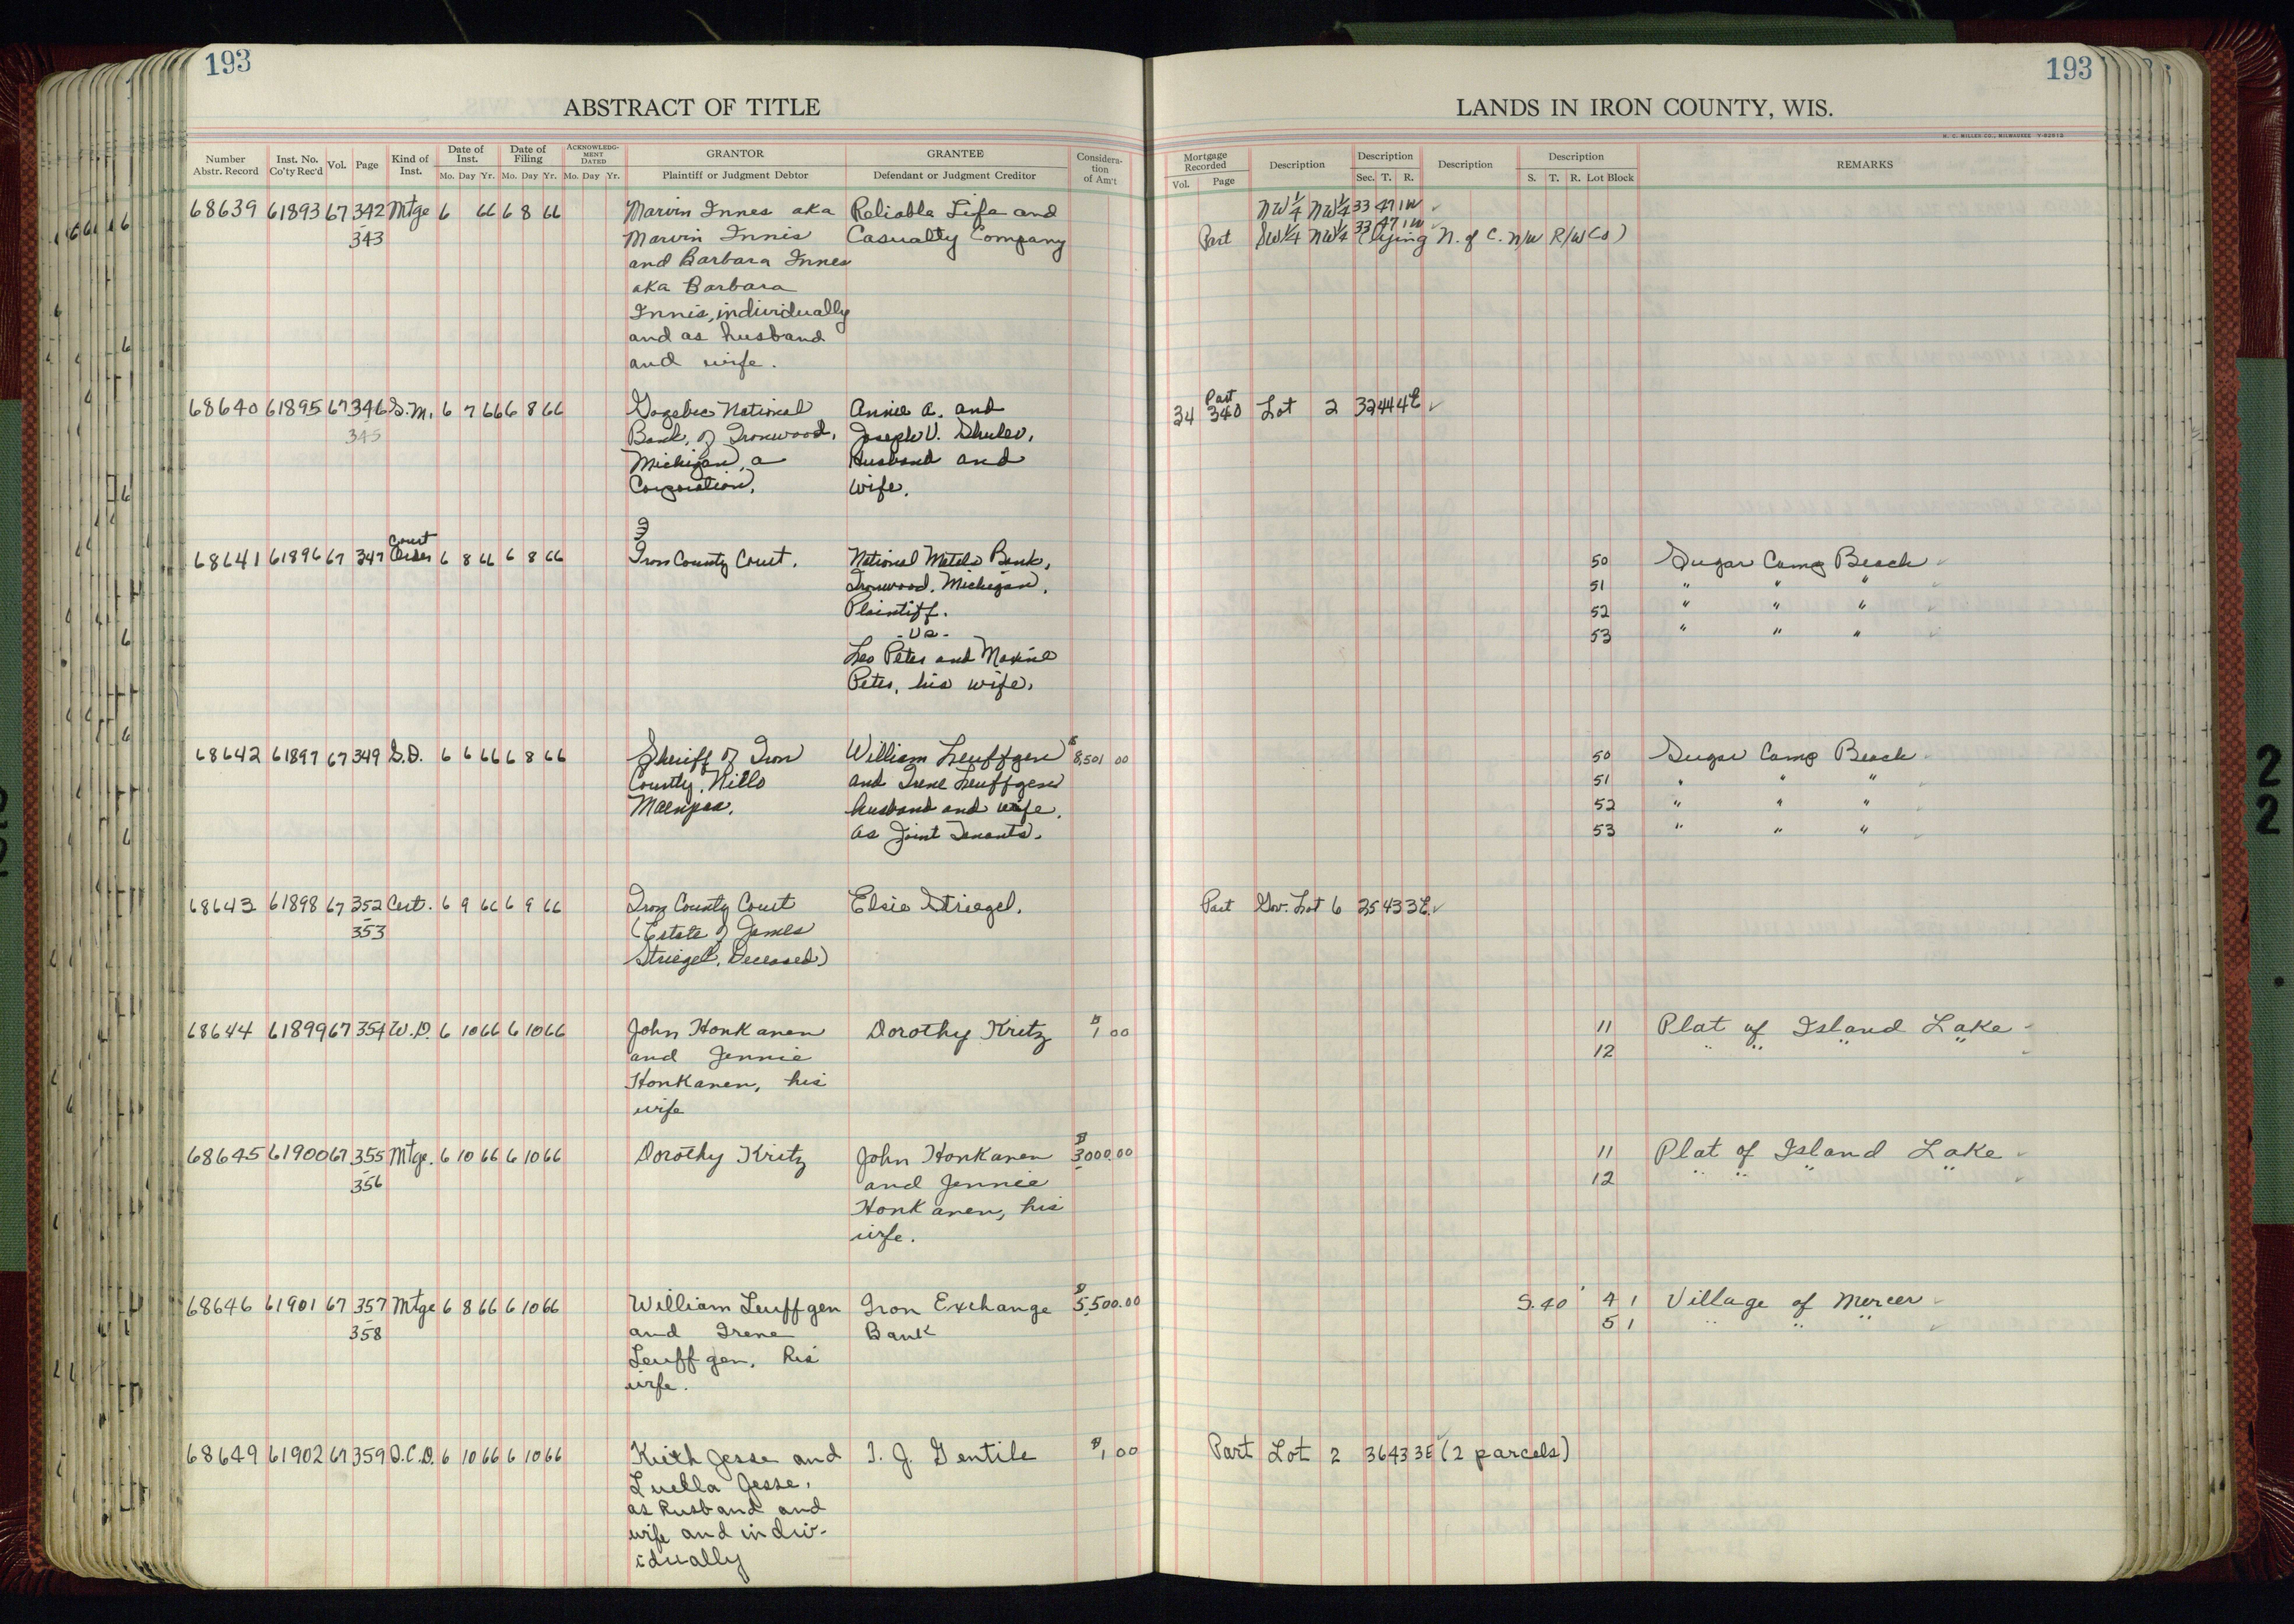 193
ABSTRACT OF TITLE
Number Abstr. Record | Inst. No. Co'ty Rec'd | Vol. | Page | Kind of Inst. | Date of Inst. Mo. Day Yr. | Date of Filing Mo. Day Yr. | ACKNOWLEDGMENT DATED Mo. Day Yr. | GRANTOR Plaintiff or Judgment Debtor | GRANTEE Defendant or Judgment Creditor | Consideration of Am't
68639 61893 67 342 Mtge 6 66 6 8 66 Marvin Innes aka Reliable Life and
343 Marvin Innis Casualty Company
and Barbara Innes
aka Barbara
Innis, individually
and as husband
and wife.
68640 61895 67 346 S.M. 6 7 66 6 8 66 Gogebic National Annie A. and
345 Bank, of Ironwood, Joseph V. Shuler,
Michigan, a Husband and
Corporation. Wife.
Court
68641 61896 67 347 Order 6 8 66 6 8 66 Iron County Court. National Metals Bank,
Ironwood, Michigan,
Plaintiff.
-vs-
Leo Peter and Maxine
Peter, his wife.
68642 61897 67 349 S.D. 6 6 66 6 8 66 Sheriff of Iron William Leuffgen $8,501 00
County, Niilo and Irene Leuffgen
Maenpaa. husband and wife,
as Joint Tenants.
68643 61898 67 352 Cert. 6 9 66 6 9 66 Iron County Court Elsie Striegel.
353 (Estate of James
Striegel, Deceased)
68644 61899 67 354 W.D. 6 10 66 6 10 66 John Honkanen Dorothy Kritz $1 00
and Jennie
Honkanen, his
wife
68645 61900 67 355 Mtge. 6 10 66 6 10 66 Dorothy Kritz John Honkanen $3000.00
356 and Jennie
Honkanen, his
wife.
68646 61901 67 357 Mtge 6 8 66 6 10 66 William Leuffgen Iron Exchange $5,500.00
358 and Irene Bank
Leuffgen, his
wife.
68649 61902 67 359 Q.C.D. 6 10 66 6 10 66 Keith Jesse and I. J. Gentile $1,00
Luella Jesse,
as husband and
wife and indiv-
idually
193
LANDS IN IRON COUNTY, WIS.
H. C. MILLER CO., MILWAUKEE
Mortgage Recorded Vol. Page | Description | Description Sec. T. R. | Description | Description S. T. R. Lot Block | REMARKS
NW¼ NW¼ 33 47 1W ✓
Part SW¼ NW¼ 33 47 1W (lying N. of C. N/W R/W (s)) ✓
Part
34 340 Lot 2 32 44 4E ✓
50 Sugar Camp Beach ✓
51 " " " ✓
52 " " " ✓
53 " " " ✓
50 Sugar Camp Beach ✓
51 " " " ✓
52 " " " ✓
53 " " " ✓
Part Gov. Lot 6 25 43 3E. ✓
11 Plat of Island Lake ✓
12 " " " " ✓
11 Plat of Island Lake ✓
12 " " " " ✓
S. 40' 4 1 Village of Mercer ✓
5 1 " " " ✓
Part Lot 2 36 43 3E (2 parcels) ✓